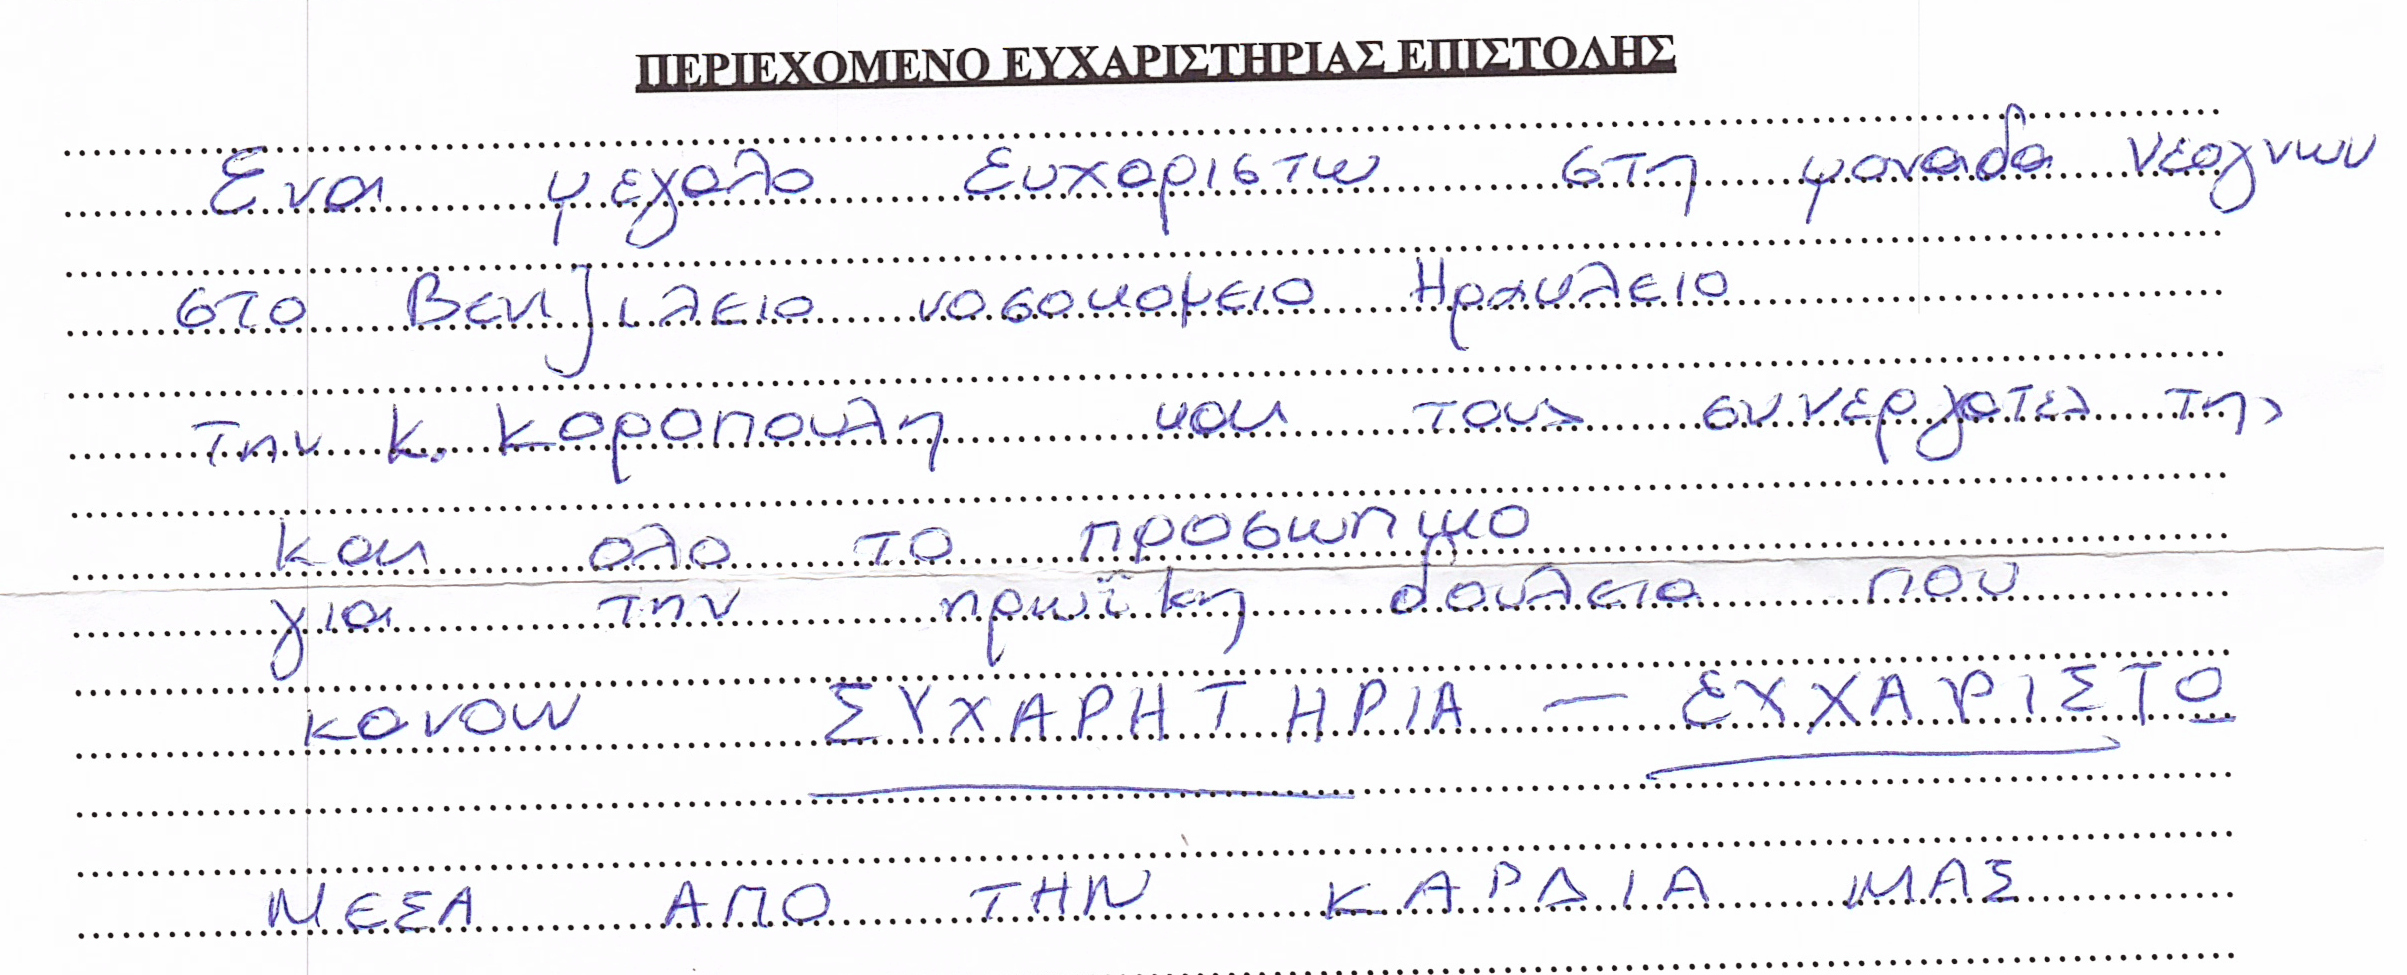 ΠΕΡΙΕΧΟΜΕΝΟ ΕΥΧΑΡΙΣΤΗΡΙΑΣ ΕΠΙΣΤΟΛΗΣ
Ενα μεγαλο ευχαριστω στη μοναδα νεογνων
στο Βενιζιλειο νοσοκομειο Ηρακλειο
την κ. Κοροπουλη και τους συνεργατες της
και ολο το προσωπικο
για την πρωϊκη δουλεια που
κανουν ΣΥΧΑΡΗΤΗΡΙΑ – ΕΥΧΑΡΙΣΤΟ
ΜΕΣΑ ΑΠΟ ΤΗΝ ΚΑΡΔΙΑ ΜΑΣ